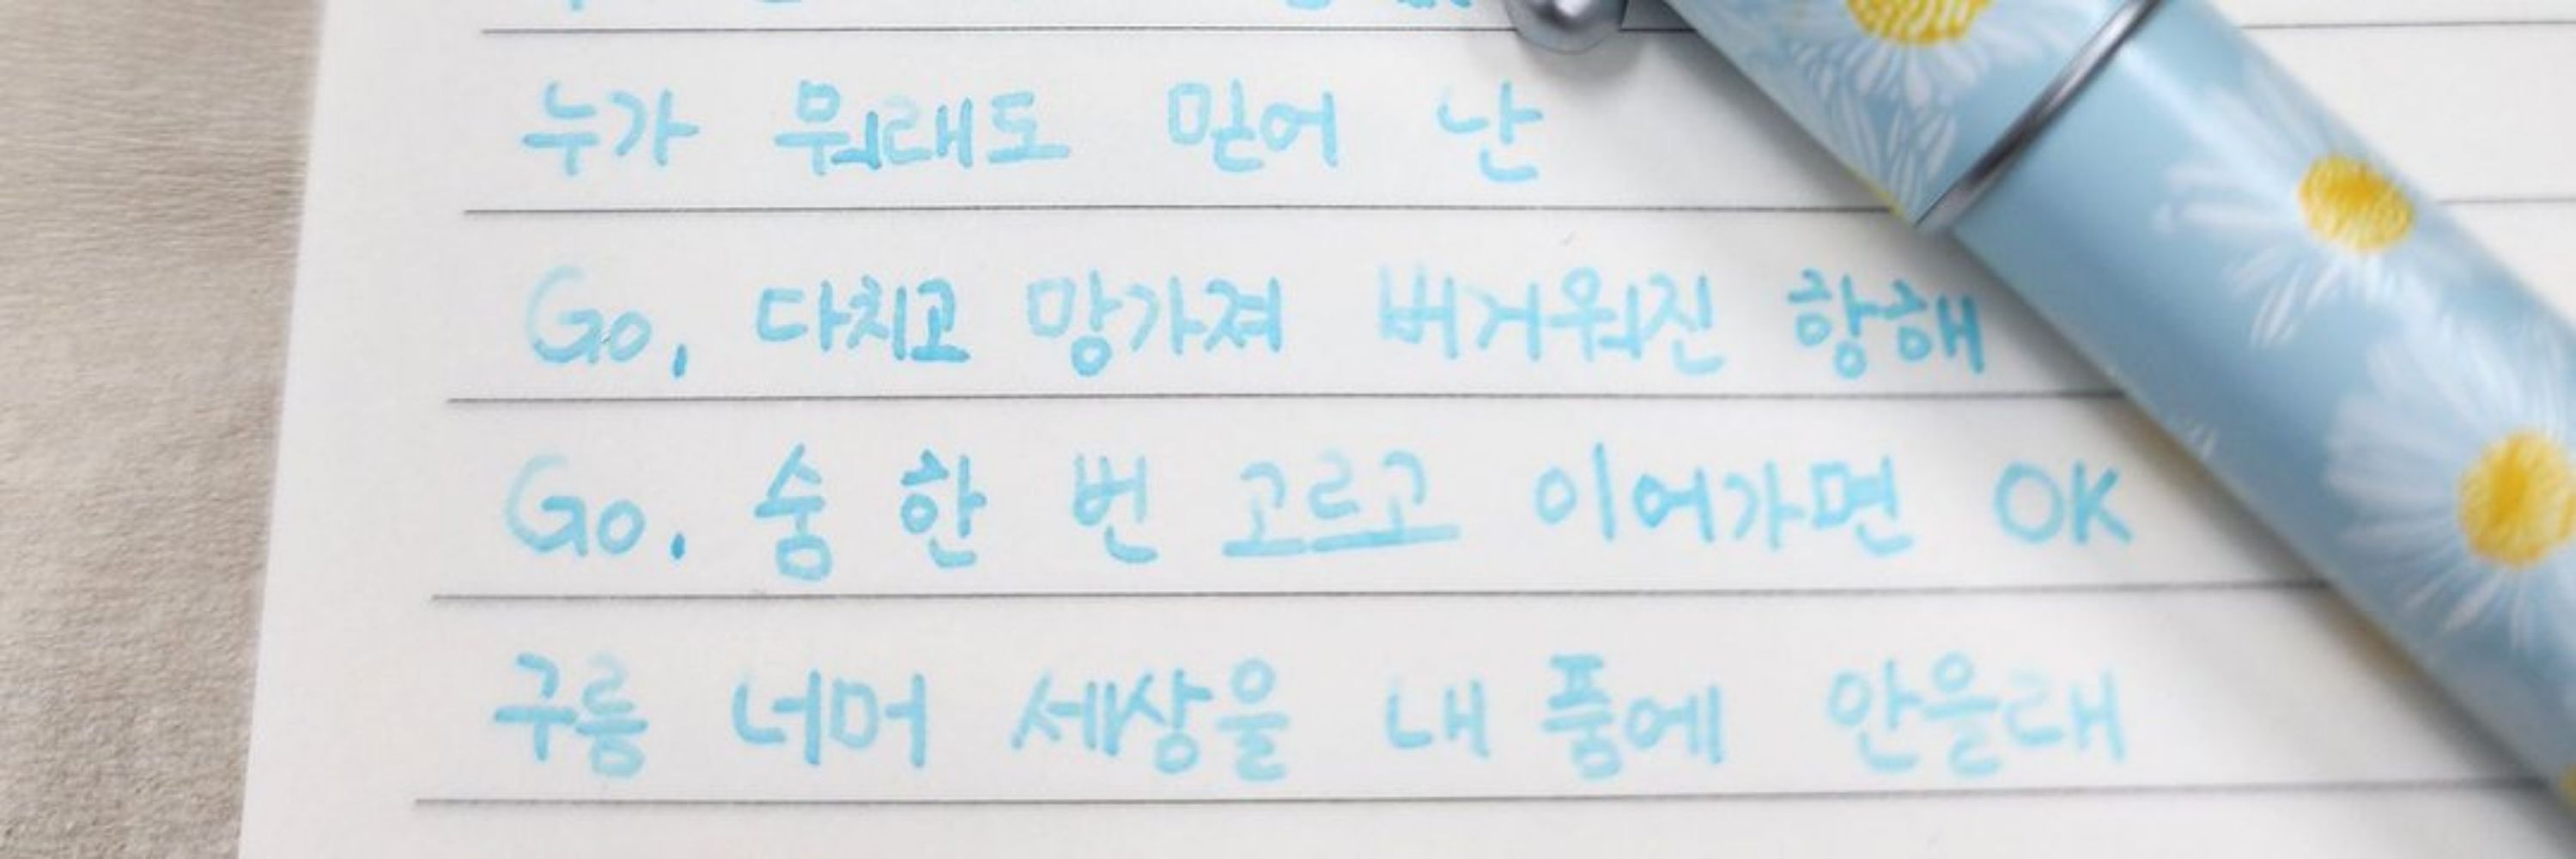 누가 뭐래도 믿어 난
Go, 다치고 망가져 버거워진 항해
Go, 숨 한 번 고르고 이어가면 OK
구름 너머 세상을 내 품에 안을래